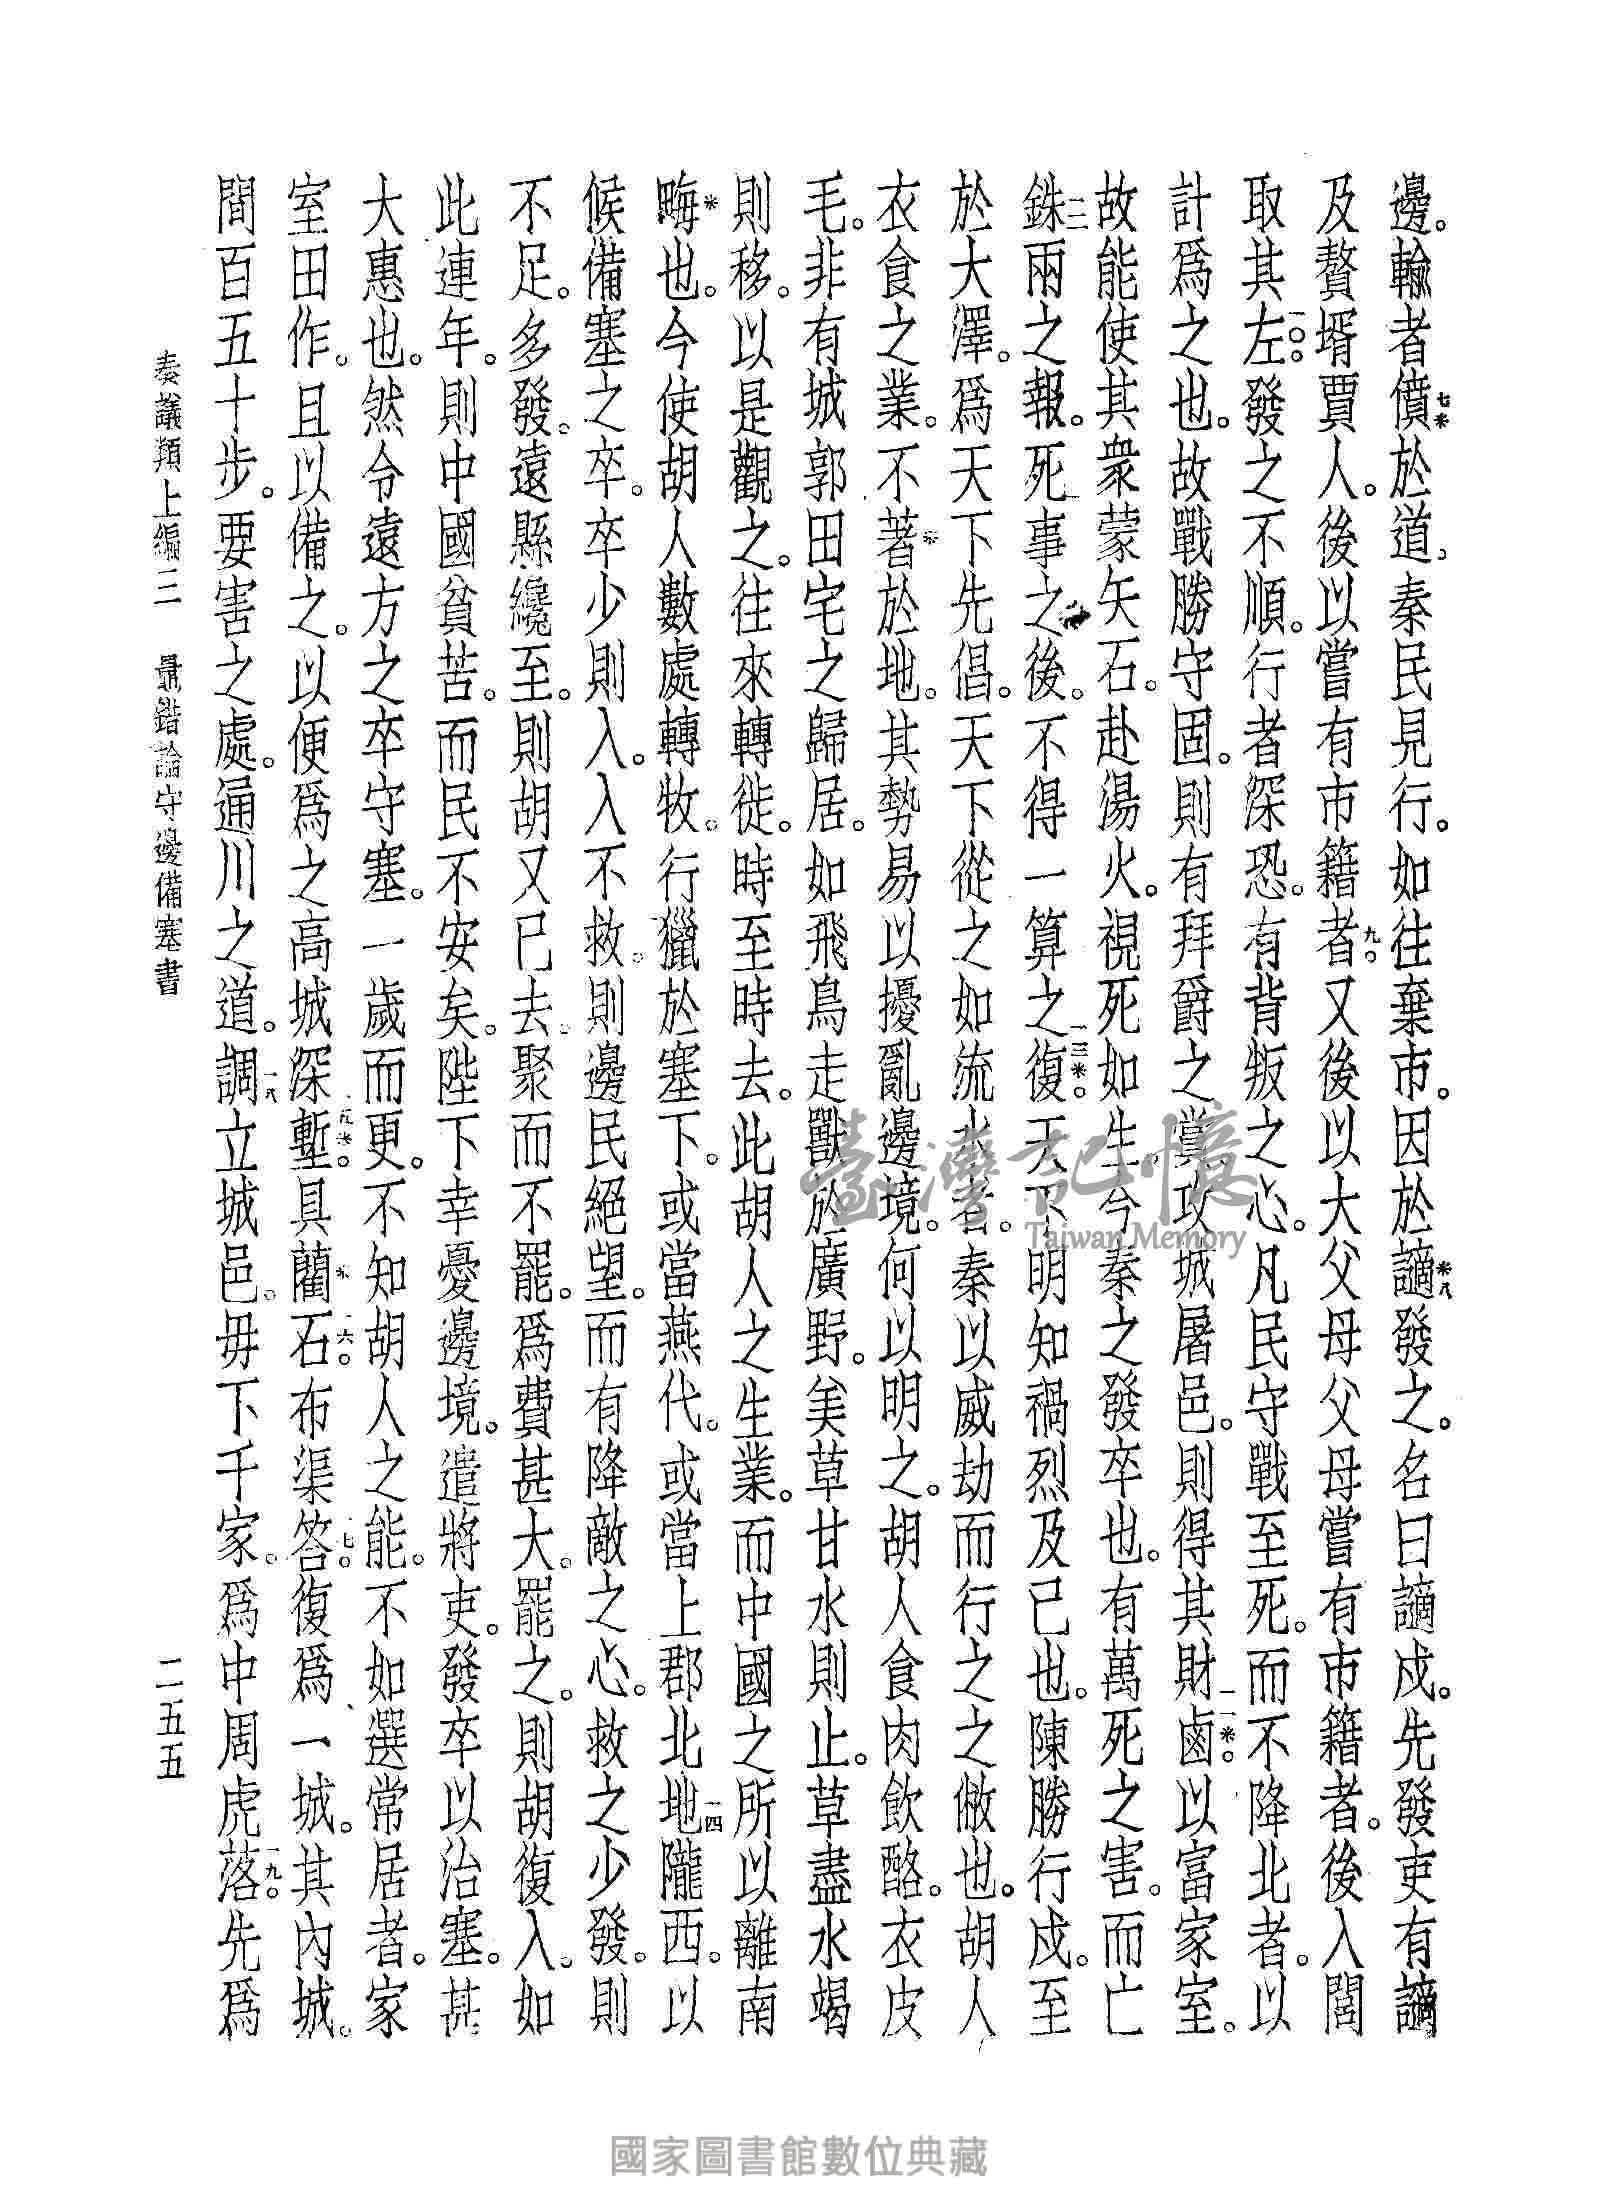 邊。輸者僨七*於道。秦民見行。如往棄市。因於讁*八發之。名曰讁戍。先發吏有讁
及贅壻賈人。後以嘗有市籍者九。又後以大父母父母嘗有市籍者。後入閭
取其左一〇。發之不順。行者深恐。有背叛之心。凡民守戰至死。而不降北者。以
計爲之也。故戰勝守固。則有拜爵之賞。攻城屠邑。則得其財鹵一一*。以富家室。
故能使其衆蒙矢石。赴湯火。視死如生。今秦之發卒也。有萬死之害。而亡
銖一二兩之報。死事之後。不得一算之復一三*。天下明知禍烈及已也。陳勝行戍。至
於大澤。爲天下先倡。天下從之如流水者。秦以威劫而行之之倣也。胡人
衣食之業。不著*於地。其勢易以擾亂邊境。何以明之。胡人食肉飲酪。衣皮
毛。非有城郭田宅之歸居。如飛鳥走獸於廣野。美草甘水則止。草盡水竭
則移。以是觀之。往來轉徙。時至時去。此胡人之生業。而中國之所以離南
畮*也。今使胡人數處轉牧。行獵於塞下。或當燕代。或當上郡北地一四隴西。以
候備塞之卒。卒少則入。入不救。則邊民絕望。而有降敵之心。救之少發。則
不足。多發。遠縣纔至。則胡又已去。聚而不罷。爲費甚大。罷之。則胡復入。如
此連年。則中國貧苦。而民不安矣。陛下幸憂邊境。遣將吏。發卒以治塞。甚
大惠也。然令遠方之卒守塞。一歲而更。不知胡人之能。不如選常居者。家
室田作。且以備之。以便爲之高城深塹*。具藺*石一六。布渠答一七。復爲一城。其內城。
間百五十步。要害之處。通川之道。調一八立城邑。毋下千家。爲中周虎落一九。先爲
奏議類上編三 鼂錯論守邊備塞書 二五五
臺灣記憶
Taiwan Memory
國家圖書館數位典藏